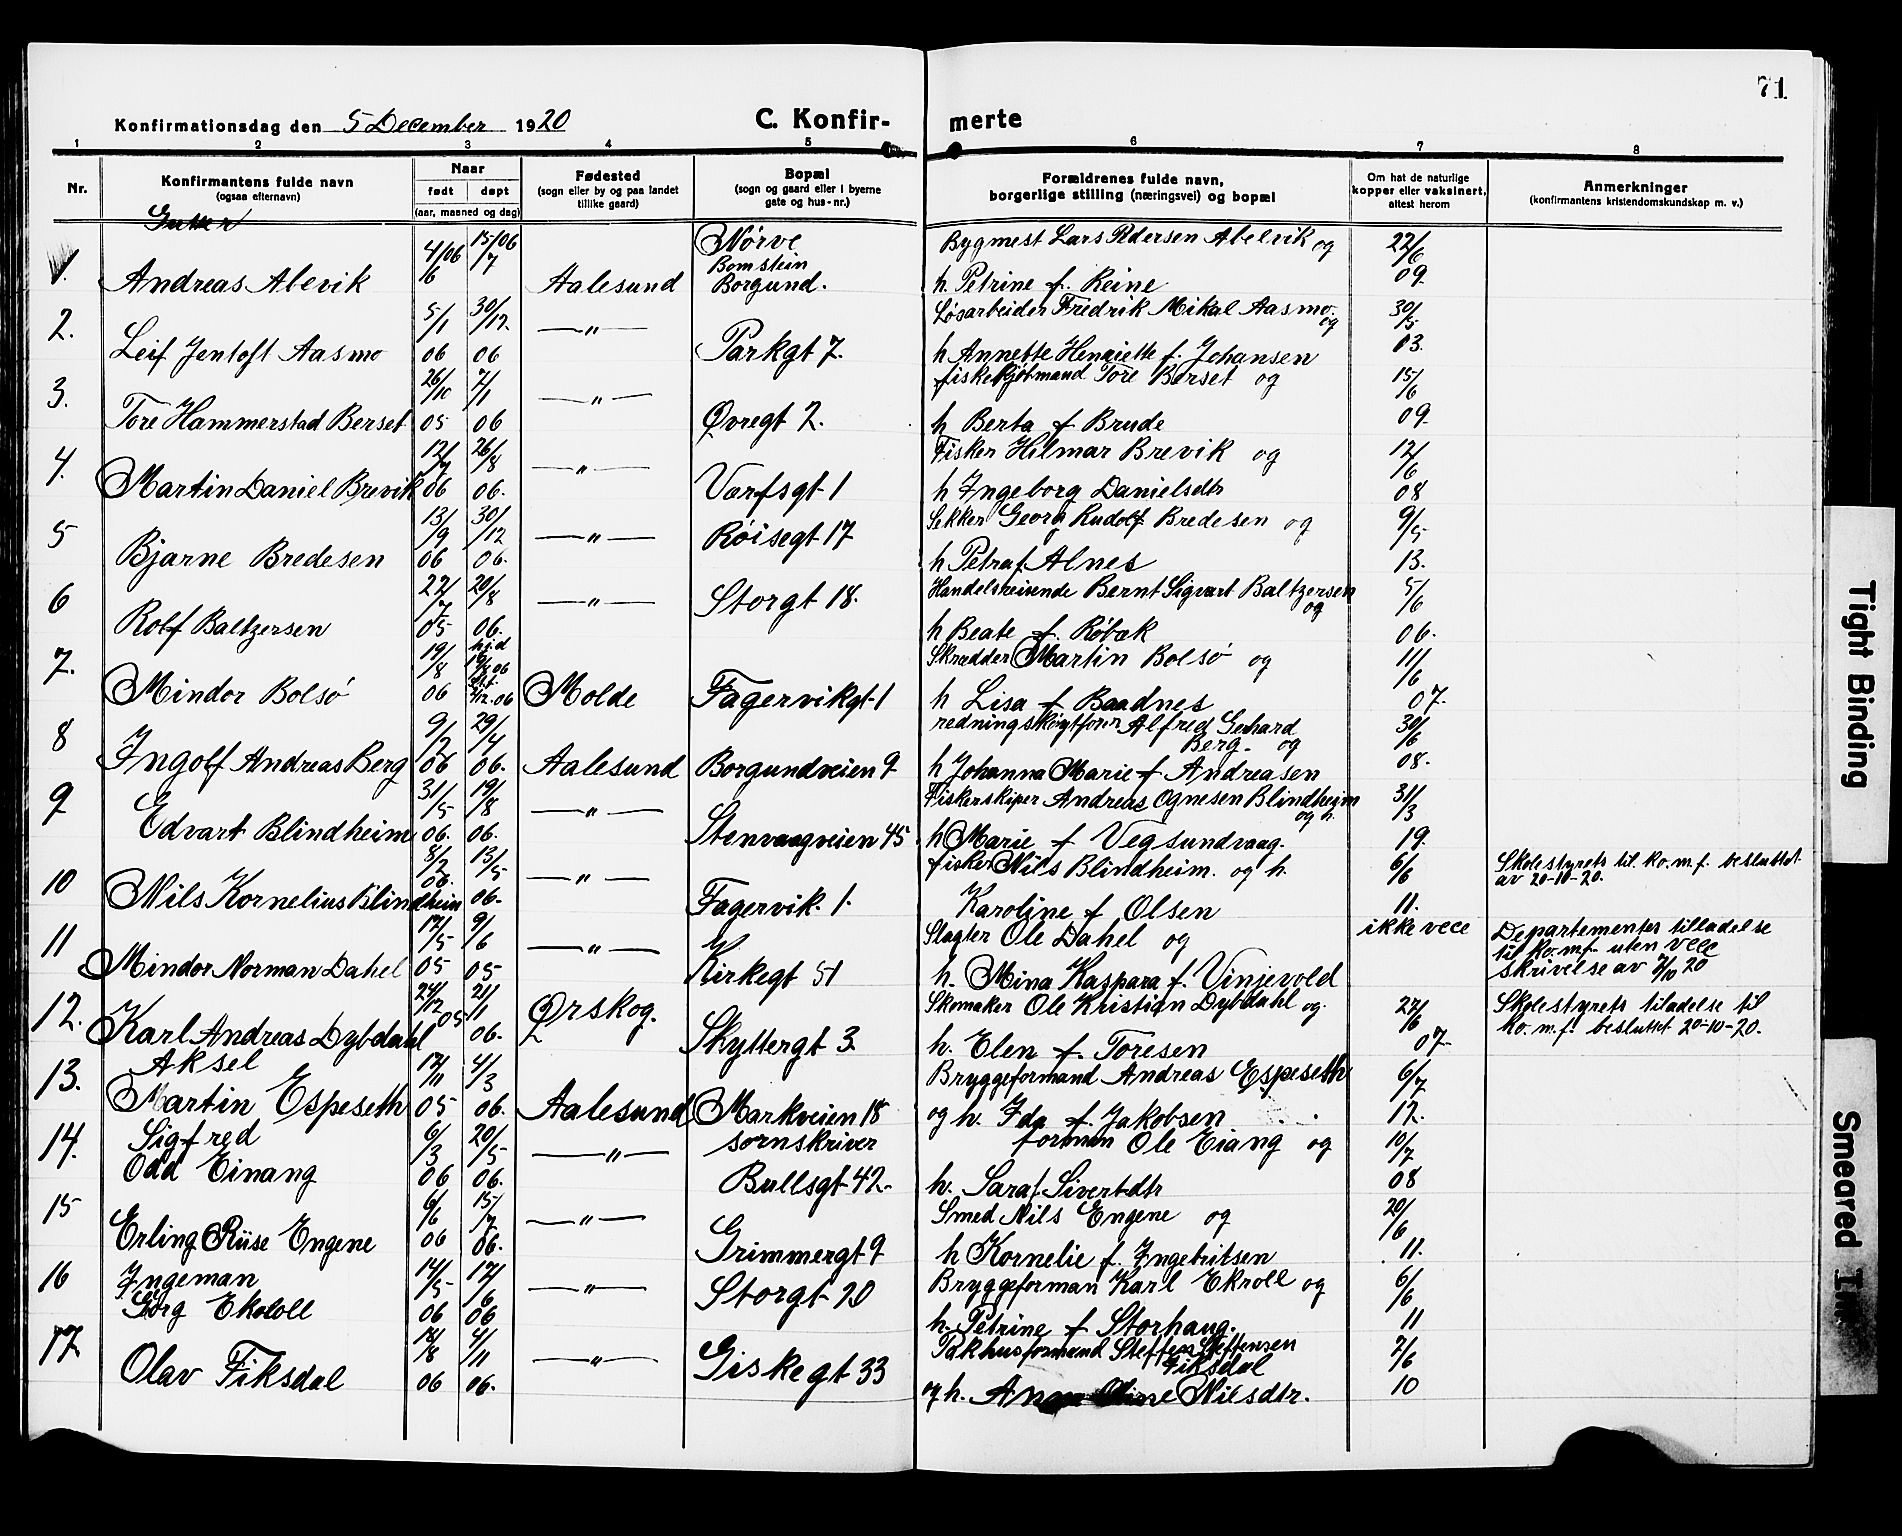 71
Konfirmationsdag den 5 December 1920 C. Konfir- merte
1 2 3 4 5 6 7 8
Nr.
Konfirmantens fulde navn
(ogsaa efternavn)
Naar
født døpt
(aar, maaned og dag)
Fødested
(sogn eller by og paa landet
tillike gaard)
Bopæl
(sogn og gaard eller i byerne
gate og hus-nr.)
Forældrenes fulde navn,
borgerlige stilling (næringsvei) og bopæl
Om hat de naturlige
kopper eller vaksinert,
attest herom
Anmerkninger
(konfirmantens kristendomskundskap m. v.)
Gutter
1. Andreas Alevik 4/6 06 15/7 06 Aalesund Nørve
Bomstein
Borgund.
Bygmest Lars Pedersen Abelvik og
h. Petrine f. Reine
22/6 09.
2. Leif Jentoft Aasmo 5/1 06 30/12 06 —"— Parkgt 7.
Løsarbeider Fredrik Mikal Aasmo. og
h Annette Henriette f. Johansen
30/5 03.
3. Tore Hammerstad Berset 26/10 05 7/1 06 —"— Øvregt 2.
fiskekjøbmand Tore Berset og
h Berta f Brude
15/6 09.
4. Martin Daniel Brevik 12/7 06 26/8 06. —"— Varfsgt 1
Fisker Hilmar Brevik og
h Ingeborg Danielsdtr
12/6 08
5 Bjarne Bredesen 13/9 06 30/12 06. —"— Røisegt 17
Sekker Georg Rudolf Bredesen og
h Petra f Alnes
9/5 13.
6 Rolf Baltzersen 22/7 05 20/8 06. —"— Storgt 18.
Handelsreisende Bernt Sigvart Baltzersen
og
h Beate f. Røbæk
5/6 06.
7. Mindor Bolsø 19/8 06 hjd Molde Fagervikgt 1
Skrædder Martin Bolsø og
h Lisa f Baadnes
11/6 07.
8 Ingolf Andreas Berg 9/2 06 29/4 06. Aalesund Borgundveien 9
redningskøytfører Alfred Gerhard
Berg. og
h Johanna Marie f Andreasen
30/6 08.
9 Edvart Blindheim 31/5 06. 19/8 06. —"— Stenvaagveien 45
Fiskerskiper Andreas Ognesen Blindheim
og h.
h Marie f Vegsundvaag.
31/3 19.
10 Nils Kornelius Blindheim 8/2 06. 13/5 06. —"— Fagervik. 1.
fisker Nils Blindheim. og h.
Karoline f Olsen
6/6 11.
Skolestyrets til. ko.m.f. besluttet
av 20-10-20.
11 Mindor Norman Dahel 17/5 05 9/6 05 —"— Kirkegt 51
Slagter Ole Dahel og
h. Mina Kaspara f. Vinjevold
ikke vece
Departementes tilladelse
til ko.mf. uten vece
skrivelse av 7/10 20
12. Karl Andreas Dybdahl 24/12 05 21/1 06. Ørskog. Skyttergt 3
Skomaker Ole Kristian Dybdahl og.
h. Elen f. Toresen
27/6 07.
Skolestyrets tiladelse til
ko.m.f. besluttet 20-10-20.
13. Aksel
Martin Espeseth 17/11 05 4/3 06. Aalesund Markveien 18
Bryggeformand Andreas Espeseth
og h. Ida f. Jakobsen
6/7 12.
14. Sigfred
Odd Einang 6/3 06 20/5 06. —"— sornskriver
Bullsgt 42.
forman Ole Eiang og
h. Sara f Sivertdtr
10/7 08
15 Erling Riise Engene 6/6 06 15/7 06. —"— Grimmergt 9
Smed Nils Engene og
h Kornelie f. Ingebritsen
20/6 11.
16 Ingeman
Ekololl 14/5 06 17/6 06 —"— Storgt 20
Bryggeforman Karl Ekroll og
h. Petrine f Storhaug.
6/6 11
17. Olav Fiksdal 18/8 06 4/11 06. —"— Giskegt 33
Pakhusformand Steffen Steffensen
Fiksdal
og h. Oline Nilsdtr.
7/6 10
Tight Binding
Smeared Ink